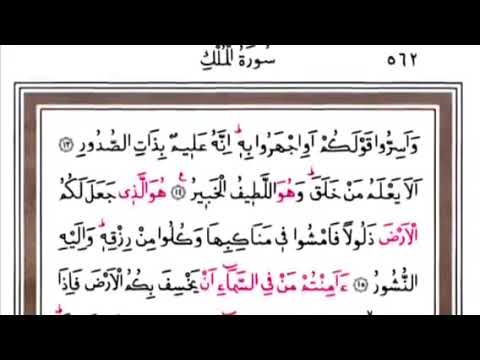 سُورَةُ الْمُلْكِ ٥٦٢
وَاَسِرُّوا قَوْلَكُمْ اَوِ اجْهَرُوا بِهٖۜ اِنَّهُ عَلٖيمٌ بِذَاتِ الصُّدُورِ ﴿١٣﴾
اَلَا يَعْلَمُ مَنْ خَلَقَۜ وَهُوَ اللَّطٖيفُ الْخَبٖيرُ ﴿١٤﴾ هُوَ الَّذٖى جَعَلَ لَكُمُ
الْاَرْضَ ذَلُولًا فَامْشُوا فٖى مَنَاكِبِهَا وَكُلُوا مِنْ رِزْقِهٖۜ وَاِلَيْهِ
النُّشُورُ ﴿١٥﴾ ءَاَمِنْتُمْ مَنْ فِى السَّمَٓاءِ اَنْ يَخْسِفَ بِكُمُ الْاَرْضَ فَاِذَا